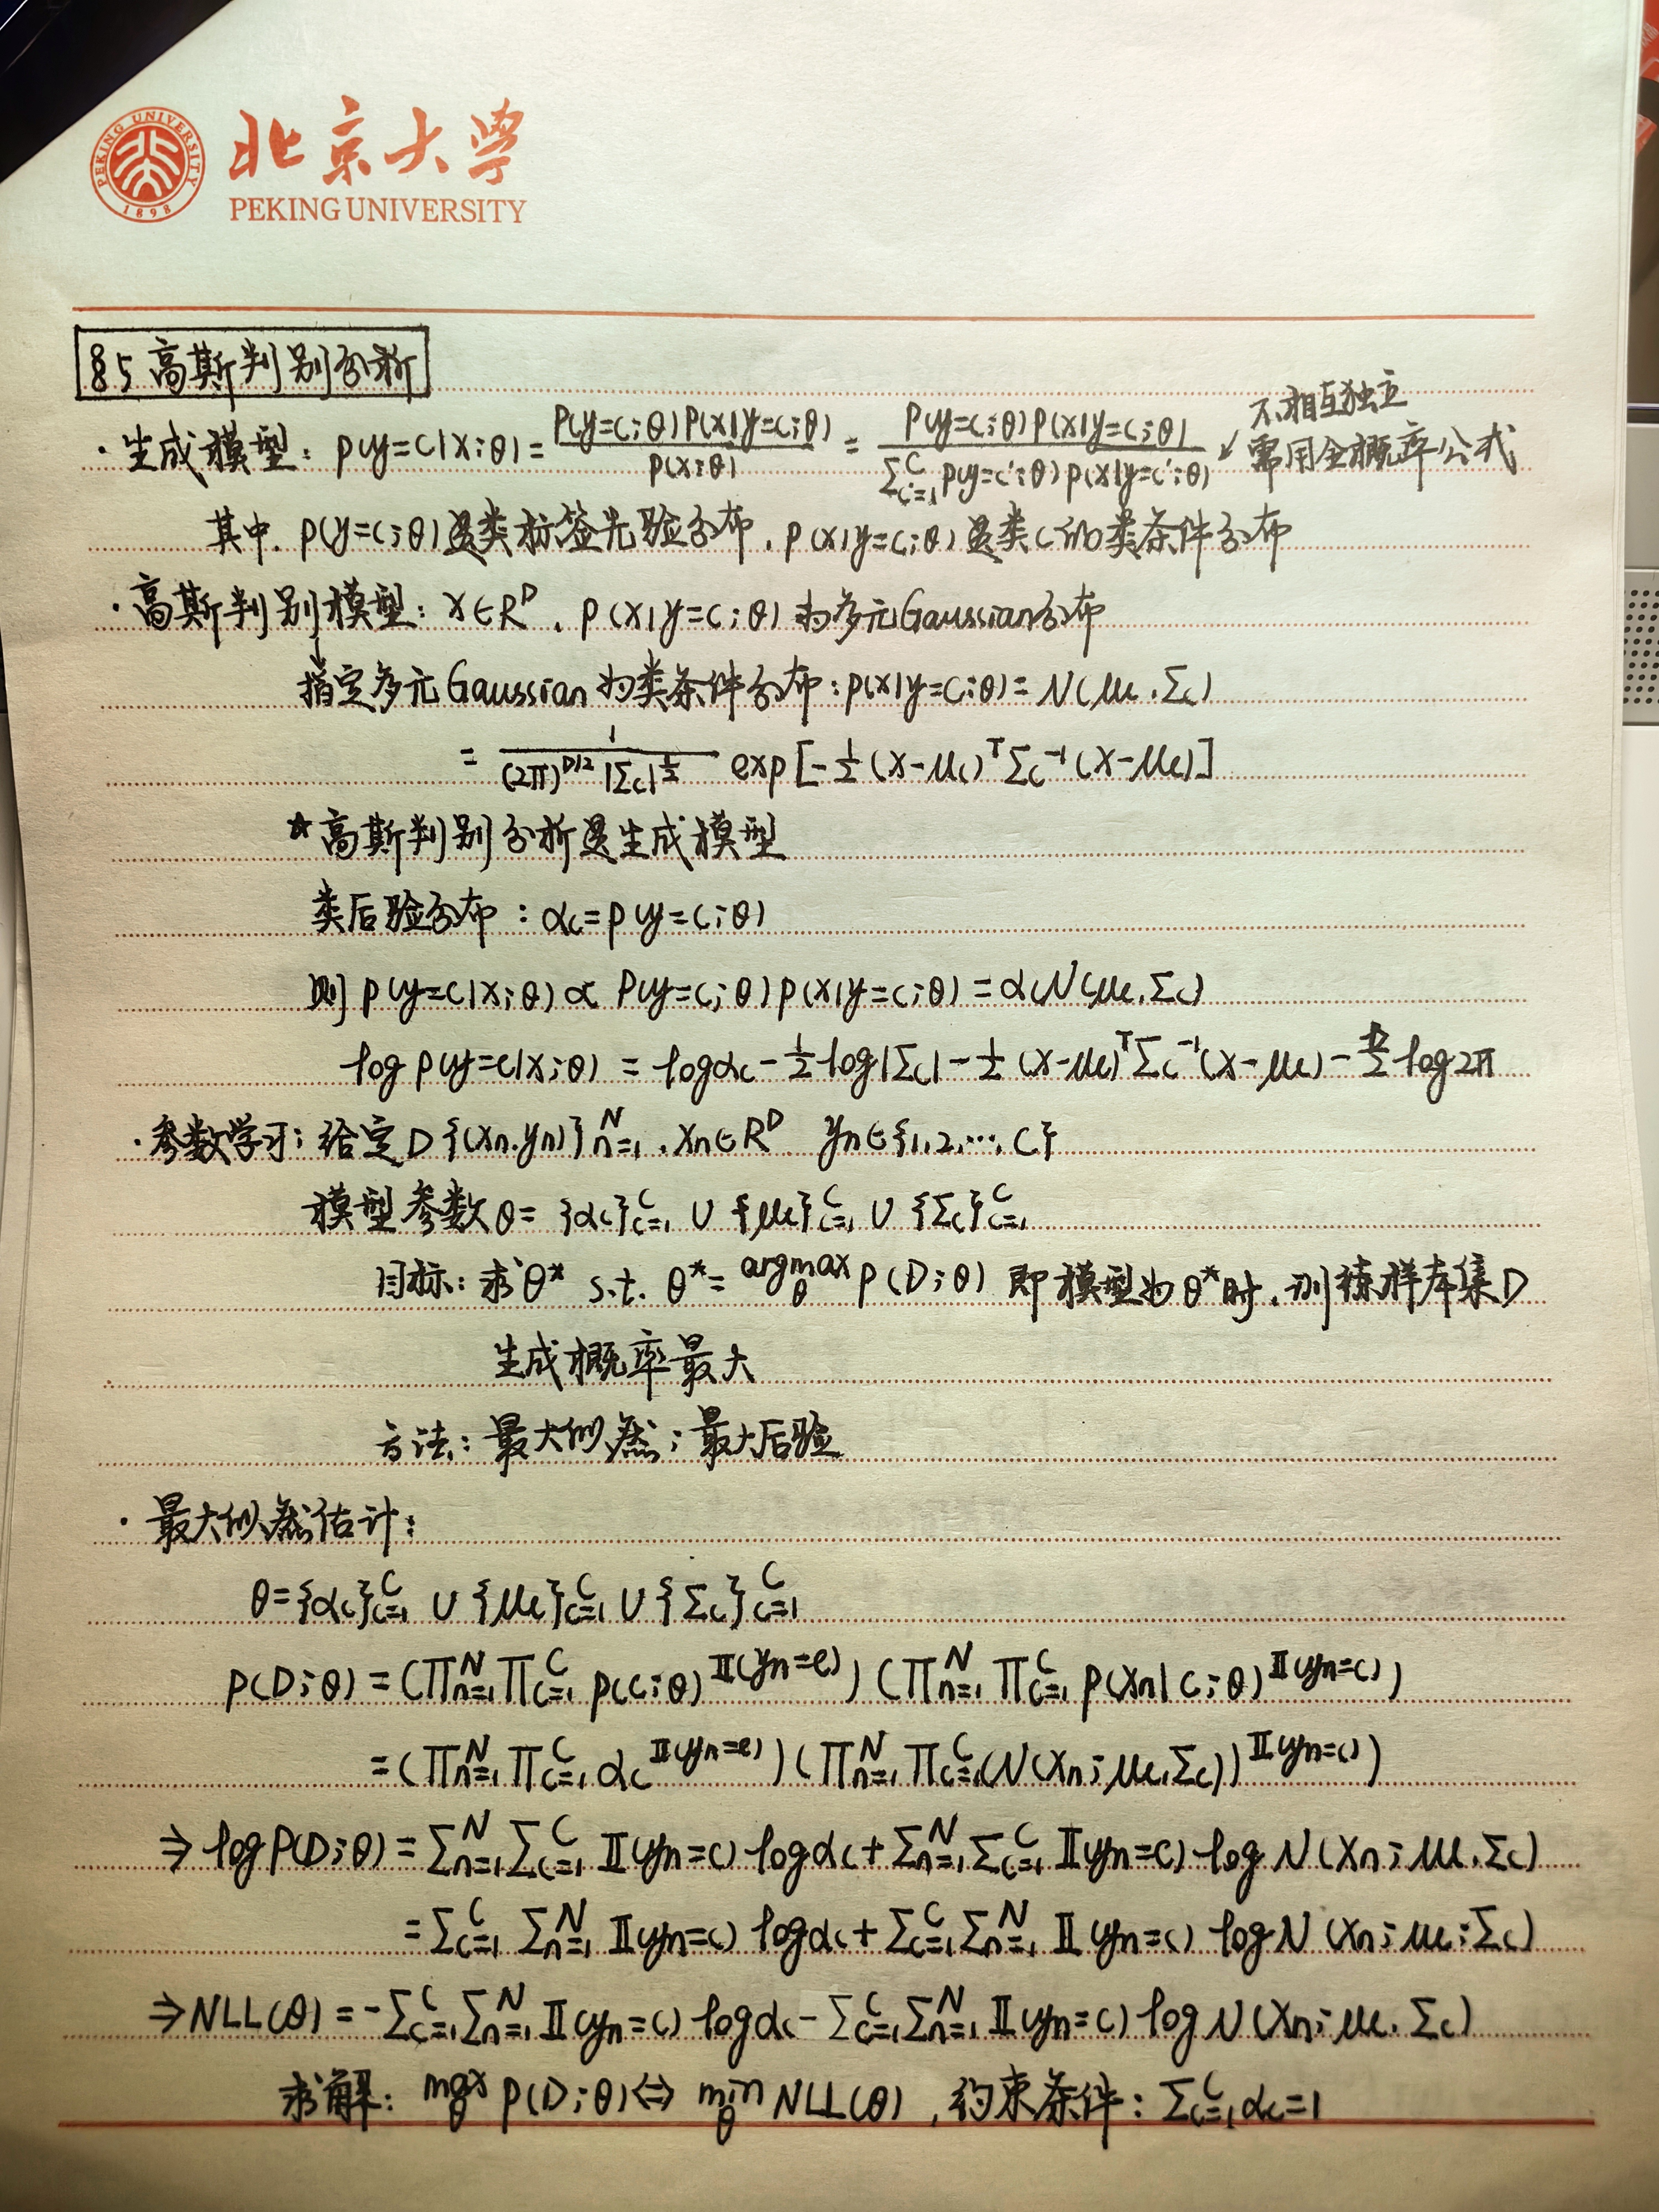 PEKING UNIVERSITY 1898
北京大学
PEKING UNIVERSITY
§5 高斯判别分析
· 生成模型: p(y=c|x;θ) = P(y=c;θ)P(x|y=c;θ) / p(x;θ) = P(y=c;θ)P(x|y=c;θ) / ∑_{c'=1}^C p(y=c';θ)p(x|y=c';θ) ↙ 不相互独立
需用全概率公式
其中, p(y=c;θ)是类标签先验分布, p(x|y=c;θ)是类c的类条件分布
· 高斯判别模型: x∈R^D, p(x|y=c;θ)为多元Gaussian分布
指定多元Gaussian为类条件分布: p(x|y=c;θ) = N(μc, Σc)
= 1 / (2π)^{D/2} |Σc|^{1/2} exp[-½(x-μc)^T Σc^{-1}(x-μc)]
* 高斯判别分析是生成模型
类后验分布: αc = p(y=c;θ)
则 p(y=c|x;θ) ∝ P(y=c;θ)p(x|y=c;θ) = αcN(μc, Σc)
log p(y=c|x;θ) = logαc - ½log|Σc| - ½(x-μc)^T Σc^{-1}(x-μc) - D/2 log2π
· 参数学习: 给定D{(xn,yn)}_{n=1}^N, xn∈R^D, yn∈{1,2,…,C}
模型参数θ= {αc}_{c=1}^C ∪ {μc}_{c=1}^C ∪ {Σc}_{c=1}^C
目标: 求θ* s.t. θ* = argmax_θ p(D;θ) 即模型为θ*时, 训练样本集D
生成概率最大
方法: 最大似然; 最大后验
· 最大似然估计:
θ={αc}_{c=1}^C ∪ {μc}_{c=1}^C ∪ {Σc}_{c=1}^C
p(D;θ) = (∏_{n=1}^N ∏_{c=1}^C p(c;θ)^{𝕀(yn=c)}) (∏_{n=1}^N ∏_{c=1}^C p(xn|c;θ)^{𝕀(yn=c)})
= (∏_{n=1}^N ∏_{c=1}^C αc^{𝕀(yn=c)}) (∏_{n=1}^N ∏_{c=1}^C (N(xn;μc,Σc))^{𝕀(yn=c)})
⇒ logP(D;θ) = ∑_{n=1}^N ∑_{c=1}^C 𝕀(yn=c) logαc + ∑_{n=1}^N ∑_{c=1}^C 𝕀(yn=c) log N(xn;μc,Σc)
= ∑_{c=1}^C ∑_{n=1}^N 𝕀(yn=c) logαc + ∑_{c=1}^C ∑_{n=1}^N 𝕀(yn=c) logN(xn;μc;Σc)
⇒ NLL(θ) = -∑_{c=1}^C ∑_{n=1}^N 𝕀(yn=c) logαc - ∑_{c=1}^C ∑_{n=1}^N 𝕀(yn=c) logN(xn;μc,Σc)
求解: max_θ p(D;θ) ⇔ min_θ NLL(θ), 约束条件: ∑_{c=1}^C αc=1